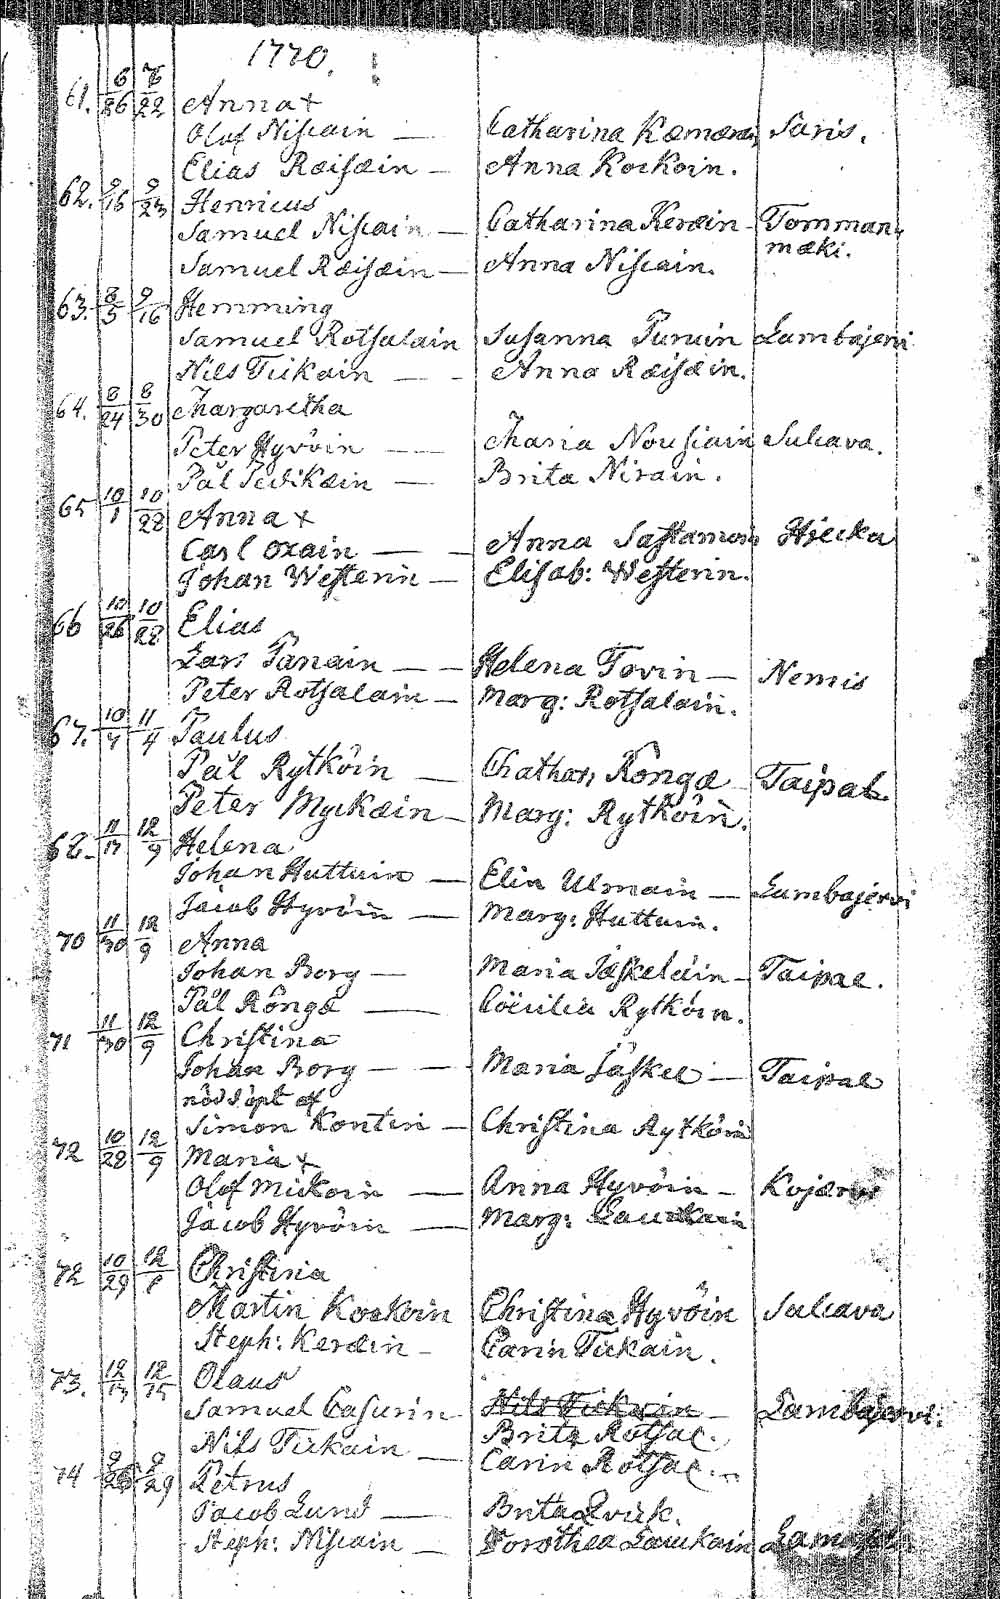 1770.
61. 6/26 7/22 Anna +
Olof Niscain — Catharina Kæmæræ, Saris.
Elias Ræisæin — Anna Kockoin.
62. 9/16 9/23 Henricus
Samuel Niscain — Catharina Keræin - Tomman-
mæki.
Samuel Ræisæin — Anna Niscain.
63. 8/3 9/16 Hemming
Samuel Rotsalain Susanna Puruin Lambajervi
Nils Tickain — - Anna Ræisæin.
64. 8/24 8/30 Margaretha
Peter Hyvöin — Maria Nousiain Sulcava.
Pål Pedikæin — Brita Nirain.
65 10/1 10/28 Anna +
Carl Oxain — - Anna Sastamoin Hiecka
Johan Westerin — Elisab: Westerin.
66 10/26 10/28 Elias
Lars Tanain — - Helena Tovin — Nemis
Peter Rotsalain — Marg: Rotsalain.
67. 10/7 11/4 Paulus
Pål Rytköin — Chathar, Rönga - Taipal
Peter Myckæin — Marg: Rytköin.
68 - 11/17 12/9 Helena
Johan Huttuin — Elin Ulmain — Lambajervi
Jacob Hyvöin — Marg: Huttuin.
70 11/30 12/9 Anna
Johan Borg — Maria Jäskeläin - Taipae.
Pål Rönga — Cöcilia Rytköin.
71 11/30 12/9 Christina
Johan Borg — - Maria Jäskel — Taipal
nöddöpt af
Simon Kontin — Christina Rytköin
72 10/28 12/9 Maria +
Olof Mickoin — Anna Hyvöin - Kojærvi
Jacob Hyvöin — Marg: Lauckain
72 10/29 12/8 Christina
Martin Kockoin Christina Hyvöin Sulcava
Steph: Keræin - Carin Tickain.
73. 12/13 12/15 Olaus
Samuel Casurin - Nils Tickain - Lambajervi.
Brita Rotsal.
Nils Tickain — Carin Rotsal.
74 9/26 9/29 Petrus
Jacob Lund — Brita Qvick.
Steph: Niscain — Dorothea Lauckain